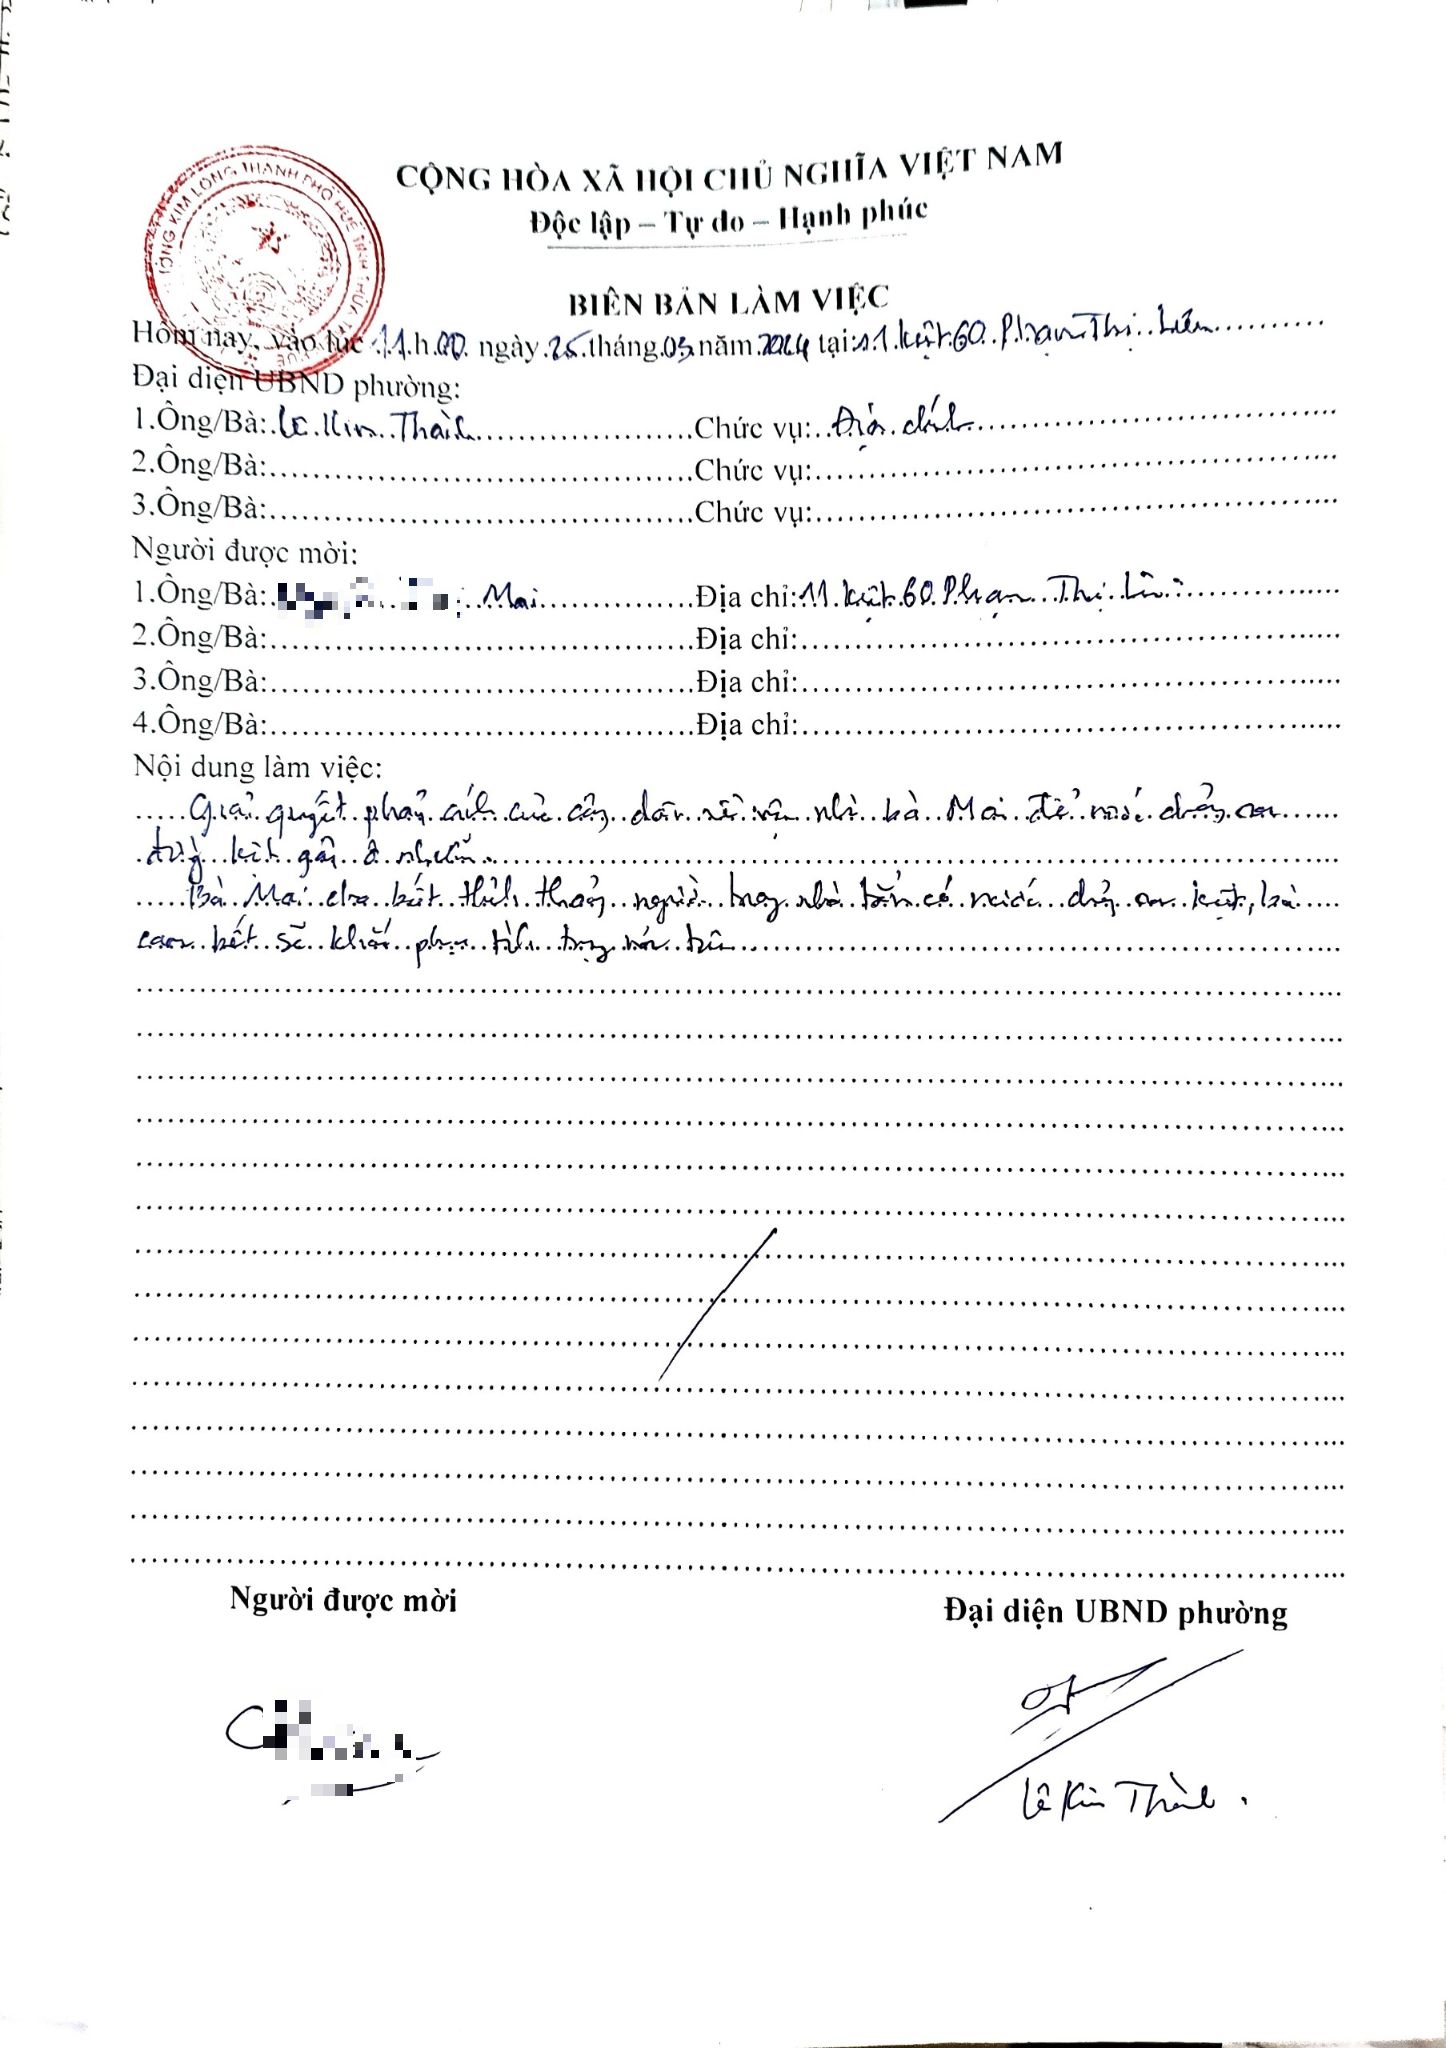 CỘNG HÒA XÃ HỘI CHỦ NGHĨA VIỆT NAM
Độc lập – Tự do – Hạnh phúc
BIÊN BẢN LÀM VIỆC
Hôm nay, vào lúc 11.h.00. ngày.25.tháng.03.năm.2024 tại:11.kiệt.60.Phạm Thị Liên..........
Đại diện UBND phường:
1.Ông/Bà:.Lê.Kim.Thành..........Chức vụ:..Địa.chính..........
2.Ông/Bà:..........Chức vụ:..........
3.Ông/Bà:..........Chức vụ:..........
Người được mời:
1.Ông/Bà:.....Mai..........Địa chỉ:11.kiệt.60.Phạm.Thị.Liên..........
2.Ông/Bà:..........Địa chỉ:..........
3.Ông/Bà:..........Địa chỉ:..........
4.Ông/Bà:..........Địa chỉ:..........
Nội dung làm việc:
.....Giải quyết phản ánh của công dân về việc nhà bà Mai để nước chảy ra......
đường kiệt gây ô nhiễm..........
.....Bà Mai cho biết thỉnh thoảng người trong nhà tắm có nước chảy ra kiệt, bà.....
cam kết sẽ khắc phục tình trạng nói trên..........
Người được mời
Đại diện UBND phường
Lê Kim Thành.